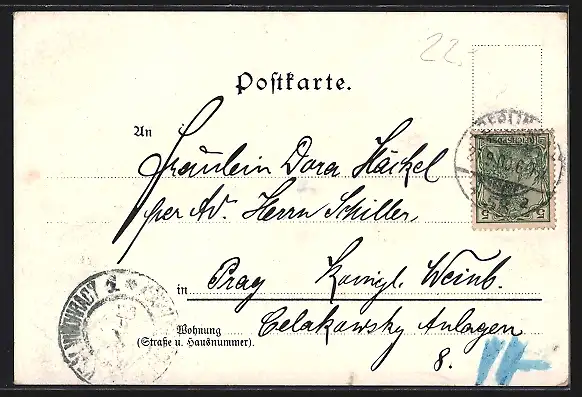 22.-
Postkarte.
An
Fräulein Dora Häckel
per Ad. Herrn Schiller,
in Prag Königl. Weinb.
Wohnung
(Straße u. Hausnummer).
Celakowsky Anlagen
8.
5 5